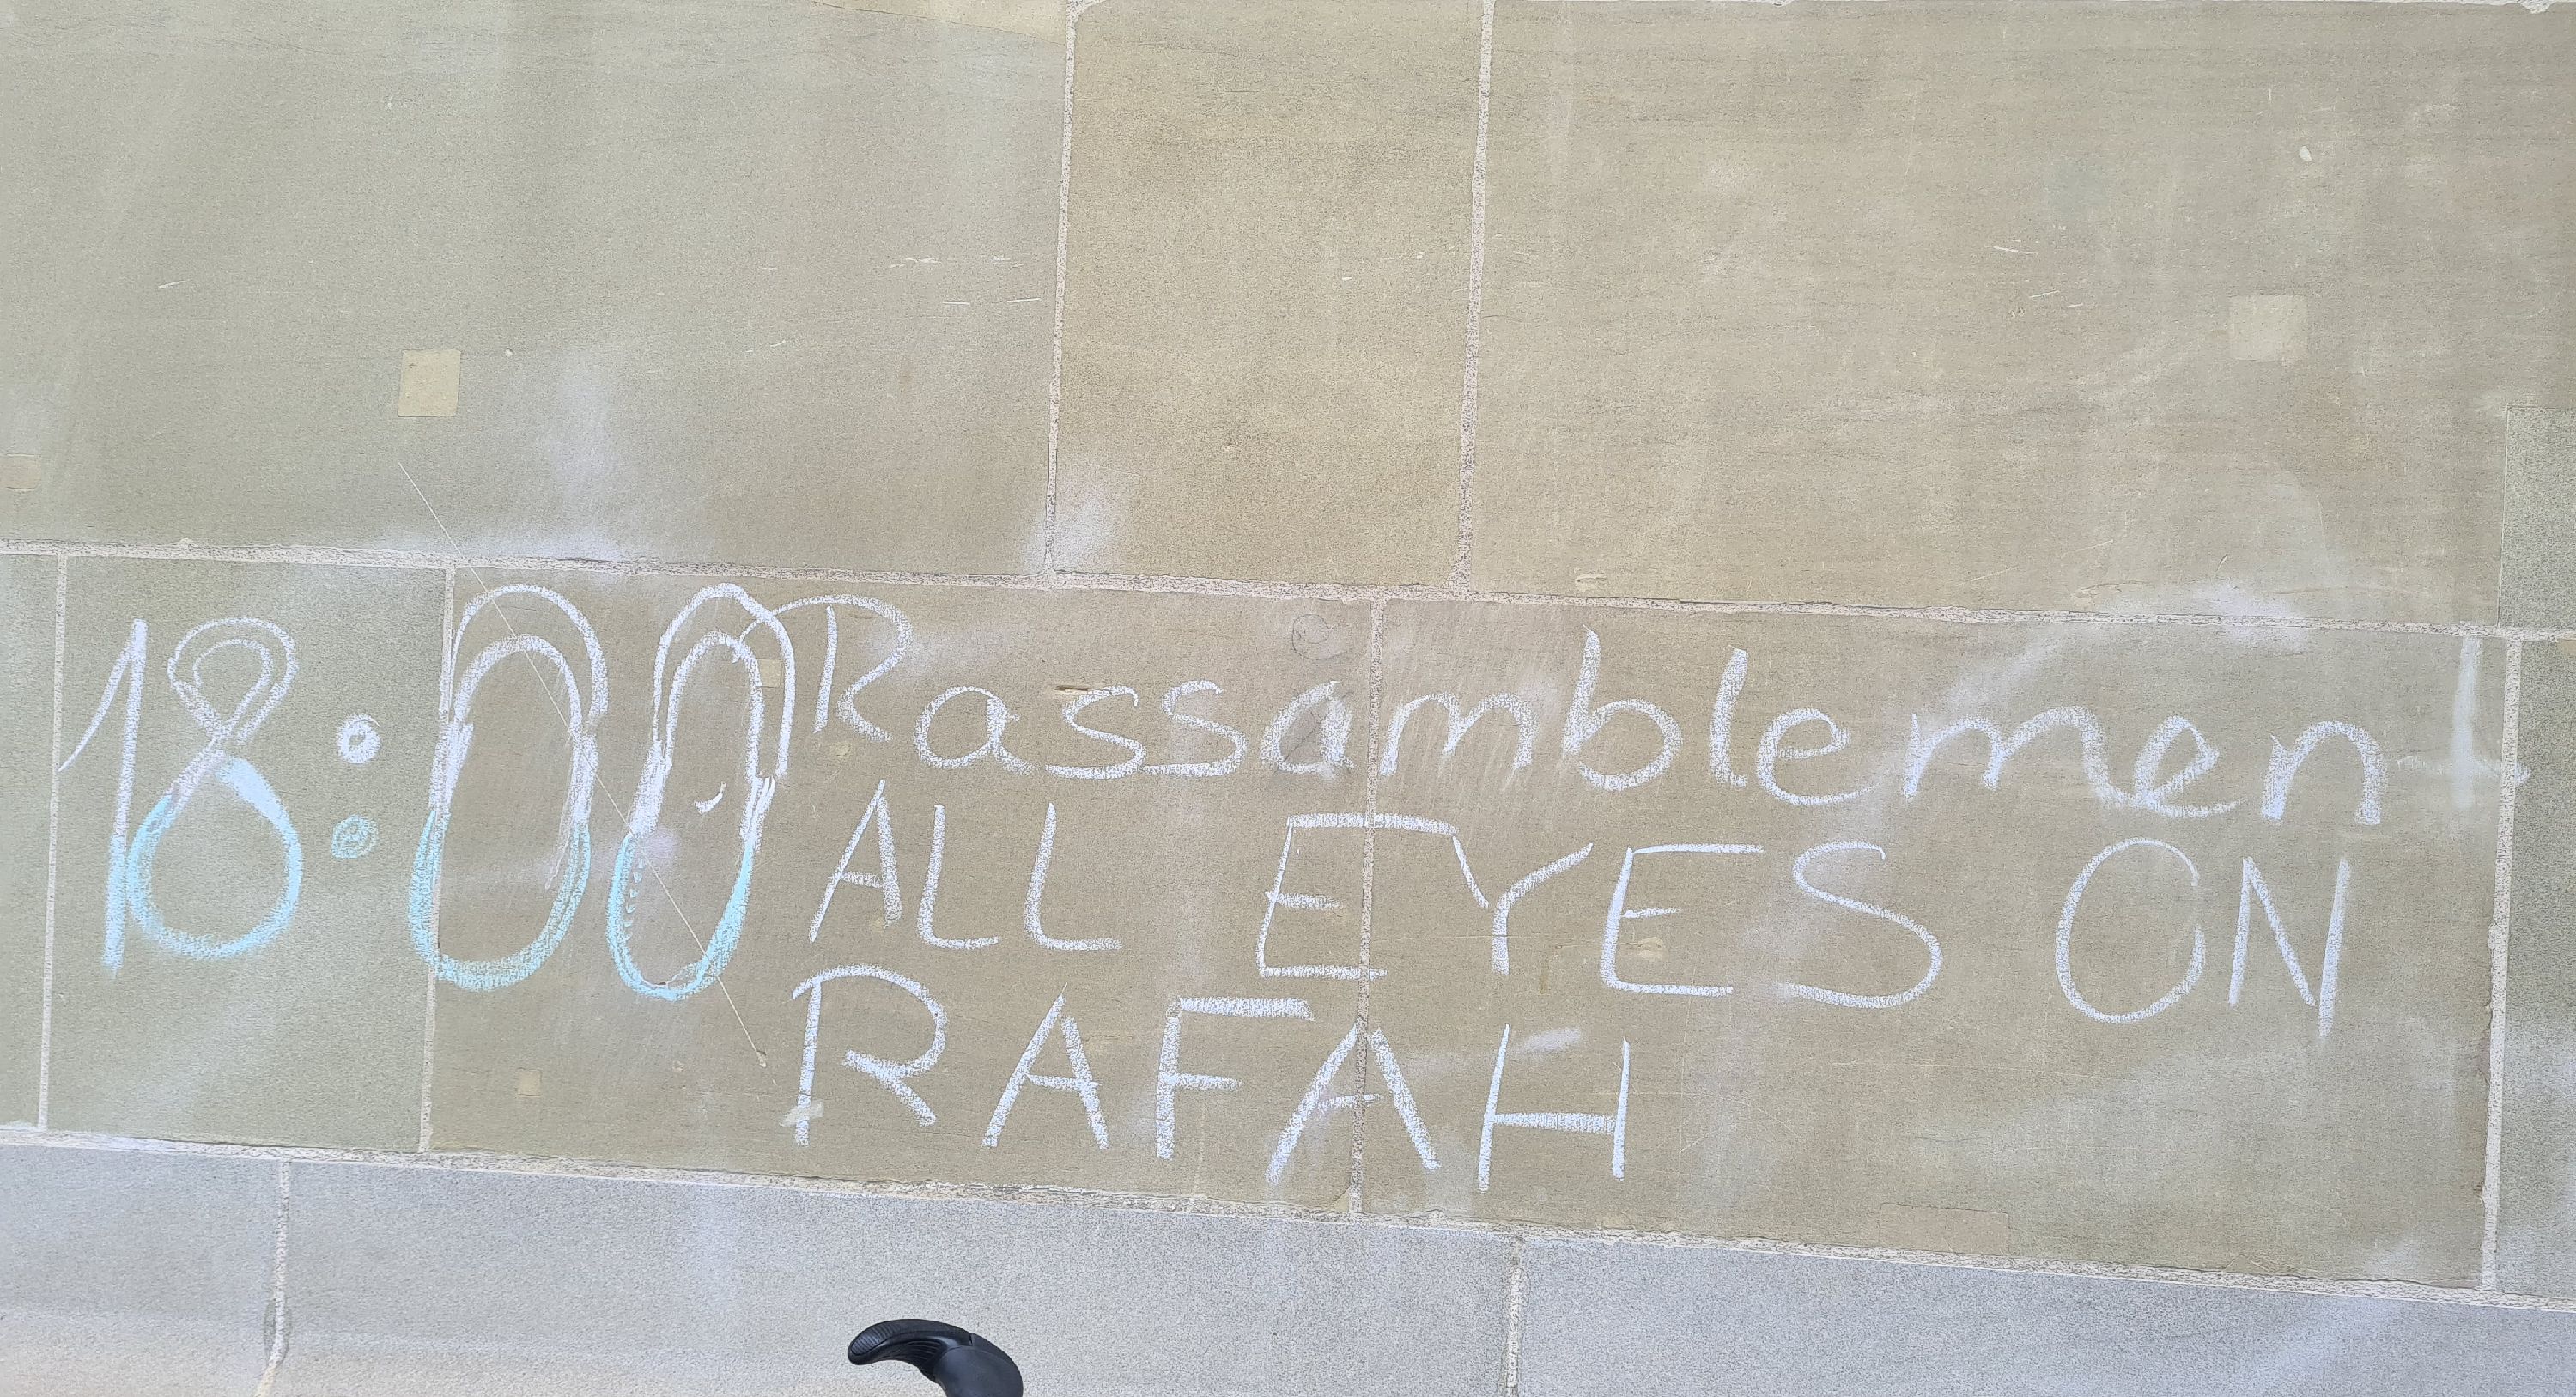 18:00 Rassamblement
ALL EYES ON
RAFAH